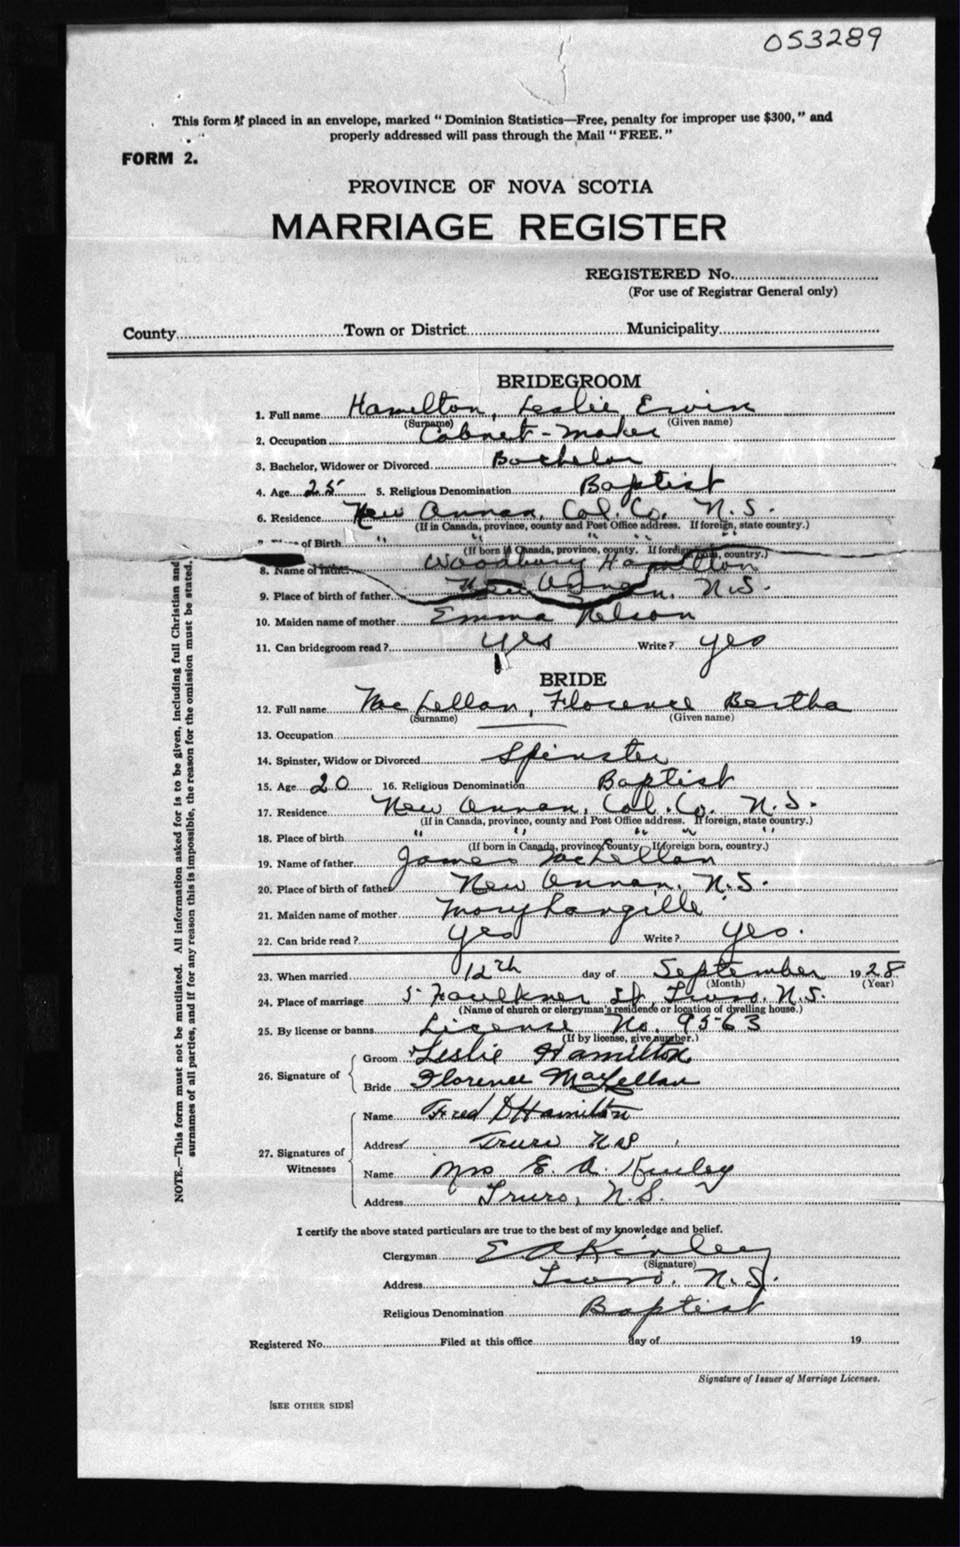 053289
This form if placed in an envelope, marked "Dominion Statistics—Free, penalty for improper use $300," and
properly addressed will pass through the Mail "FREE."
FORM 2.
PROVINCE OF NOVA SCOTIA
MARRIAGE REGISTER
REGISTERED No.
(For use of Registrar General only)
County Town or District Municipality
BRIDEGROOM
1. Full name Hamilton, Leslie Erwin
(Surname) (Given name)
2. Occupation Cabnet-maker
3. Bachelor, Widower or Divorced Bachelor
4. Age 25 5. Religious Denomination Baptist
6. Residence New Annan, Col. Co. N.S.
(If in Canada, province, county and Post Office address. If foreign, state country.)
of Birth " " " "
(If born in Canada, province, county. If foreign country.)
8. Name of father Woodbury Hamilton
9. Place of birth of father New Annan, N.S.
10. Maiden name of mother Emma Nelson
11. Can bridegroom read? yes Write? yes
BRIDE
12. Full name MacLellan, Florence Bertha
(Surname) (Given name)
13. Occupation
14. Spinster, Widow or Divorced Spinster
15. Age 20 16. Religious Denomination Baptist
17. Residence New Annan, Col. Co. N.S.
(If in Canada, province, county and Post Office address. If foreign, state country.)
18. Place of birth " " " " "
(If born in Canada, province, county. If foreign born, country.)
19. Name of father James MacLellan
20. Place of birth of father New Annan, N.S.
21. Maiden name of mother Mary Langille
22. Can bride read? yes Write? yes.
23. When married 12th day of September 1928
(Month) (Year)
24. Place of marriage 5 Faulkner St, Truro, N.S.
(Name of church or clergyman's residence or location of dwelling house.)
25. By license or banns License No. 9563
(If by license, give number.)
26. Signature of Groom Leslie Hamilton
Bride Florence MacLellan
27. Signatures of Witnesses
Name Fred D Hamilton
Address Truro N.S
Name Mrs E. A. Kinley
Address Truro, N.S.
I certify the above stated particulars are true to the best of my knowledge and belief.
Clergyman E A Kinley
(Signature)
Address Truro, N.S.
Religious Denomination Baptist
Registered No. Filed at this office day of 19
Signature of Issuer of Marriage Licenses.
[SEE OTHER SIDE]
NOTE.—This form must not be mutilated. All information asked for is to be given, including full Christian and
surnames of all parties, and if for any reason this is impossible, the reason for the omission must be stated.